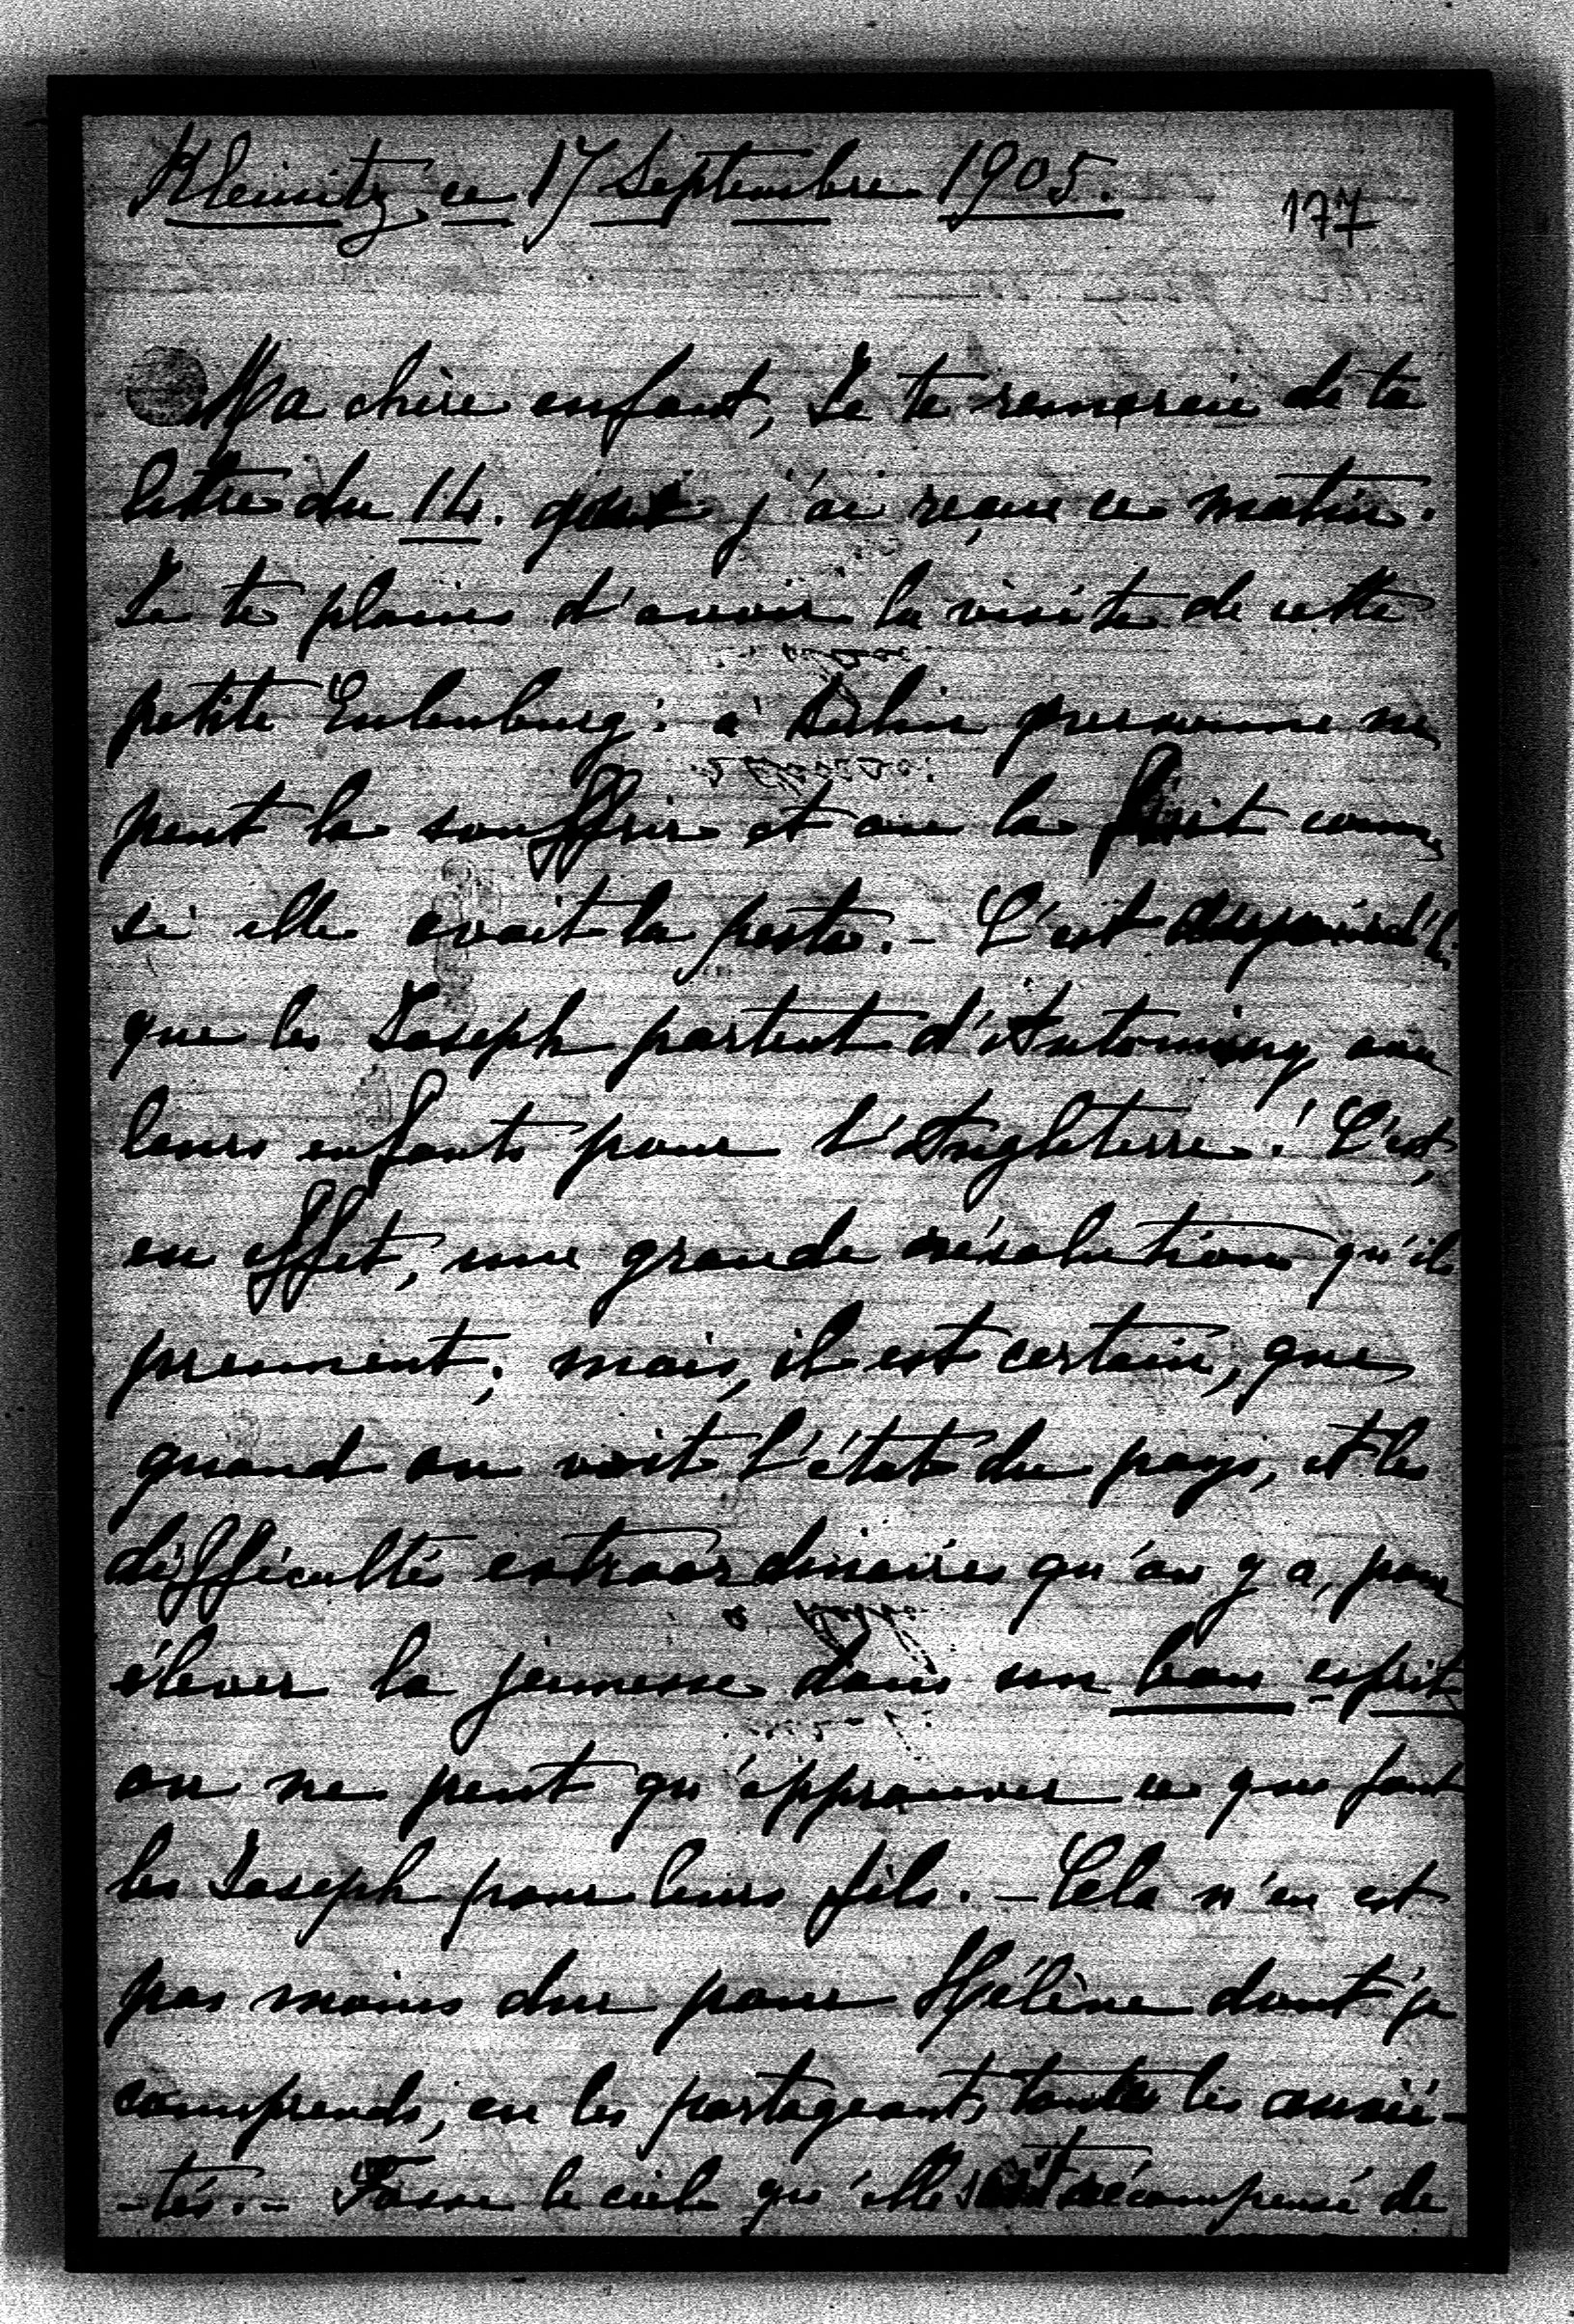 Kleinitz, ce 17 Septembre 1905.
177
Ma chère enfant, Je te remercie de ta
lettre du 14. que j'ai reçue ce matin.
Je te plains d'avoir la visite de cette
petite Eulenburg: à Berlin personne ne
peut la souffrir et on la fuit comme
si elle avait la peste. - C'est aujourd'hui
que les Joseph partent d'Antoniny avec
leurs enfants pour l'Angleterre! C'est,
en effet, une grande résolution qu'ils
prennent; mais, il est certain, que
quand on voit l'état du pays, et les
difficultés extraordinaires qu'on y a, pour
élever la jeunesse dans un bon esprit
on ne peut qu'approuver ce que font
les Joseph pour leurs fils. - Cela n'en est
pas moins dur pour Hélène dont je
comprends, en les partageant, toutes les anxié-
-tés. - Fasse le ciel qu'elle soit récompensé de